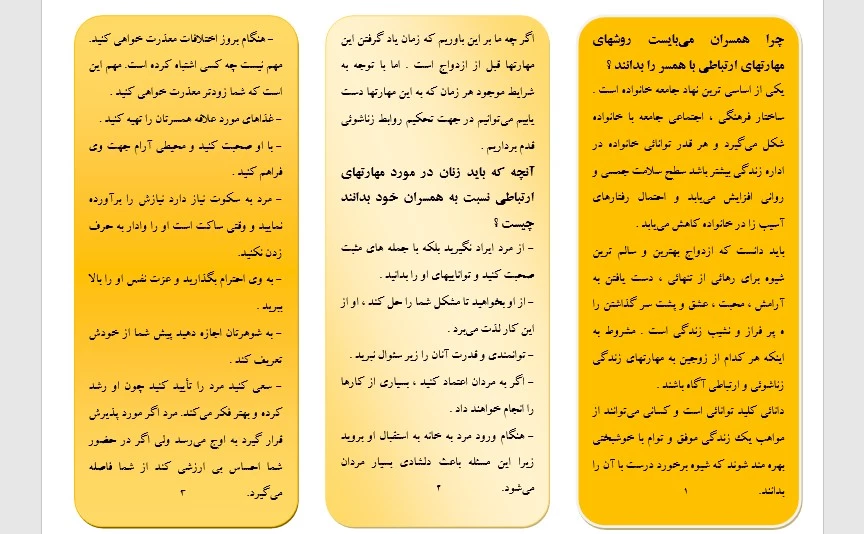 چرا همسران می‌بایست روشهای
مهارتهای ارتباطی با همسر را بدانند ؟
یکی از اساسی ترین نهاد جامعه خانواده است .
ساختار فرهنگی ، اجتماعی جامعه با خانواده
شکل می‌گیرد و هر قدر توانائی خانواده در
اداره زندگی بیشتر باشد سطح سلامت جسمی و
روانی افزایش می‌یابد و احتمال رفتارهای
آسیب زا در خانواده کاهش می‌یابد .
باید دانست که ازدواج بهترین و سالم ترین
شیوه برای رهائی از تنهائی ، دست یافتن به
آرامش ، محبت ، عشق و پشت سر گذاشتن را
ه پر فراز و نشیب زندگی است . مشروط به
اینکه هر کدام از زوجین به مهارتهای زندگی
زناشوئی و ارتباطی آگاه باشند .
دانائی کلید توانائی است و کسانی می‌توانند از
مواهب یک زندگی موفق و توام با خوشبختی
بهره مند شوند که شیوه برخورد درست با آن را
بدانند.
۱
اگر چه ما بر این باوریم که زمان یاد گرفتن این
مهارتها قبل از ازدواج است . اما با توجه به
شرایط موجود هر زمان که به این مهارتها دست
یابیم می‌توانیم در جهت تحکیم روابط زناشوئی
قدم برداریم .
آنچه که باید زنان در مورد مهارتهای
ارتباطی نسبت به همسران خود بدانند
چیست ؟
- از مرد ایراد نگیرید بلکه با جمله های مثبت
صحبت کنید و تواناییهای او را بدانید .
- از او بخواهید تا مشکل شما را حل کند ، او از
این کار لذت می‌برد .
- توانمندی و قدرت آنان را زیر سئوال نبرید .
- اگر به مردان اعتماد کنید ، بسیاری از کارها
را انجام خواهند داد .
- هنگام ورود مرد به خانه به استقبال او بروید
زیرا این مسئله باعث دلشادی بسیار مردان
می‌شود.
۲
- هنگام بروز اختلافات معذرت خواهی کنید.
مهم نیست چه کسی اشتباه کرده است. مهم این
است که شما زودتر معذرت خواهی کنید .
- غذاهای مورد علاقه همسرتان را تهیه کنید .
- با او صحبت کنید و محیطی آرام جهت وی
فراهم کنید .
- مرد به سکوت نیاز دارد نیازش را برآورده
نمایید و وقتی ساکت است او را وادار به حرف
زدن نکنید.
- به وی احترام بگذارید و عزت نفس او را بالا
ببرید .
- به شوهرتان اجازه دهید پیش شما از خودش
تعریف کند .
- سعی کنید مرد را تأیید کنید چون او رشد
کرده و بهتر فکر می‌کند. مرد اگر مورد پذیرش
قرار گیرد به اوج می‌رسد ولی اگر در حضور
شما احساس بی ارزشی کند از شما فاصله
می‌گیرد.
۳